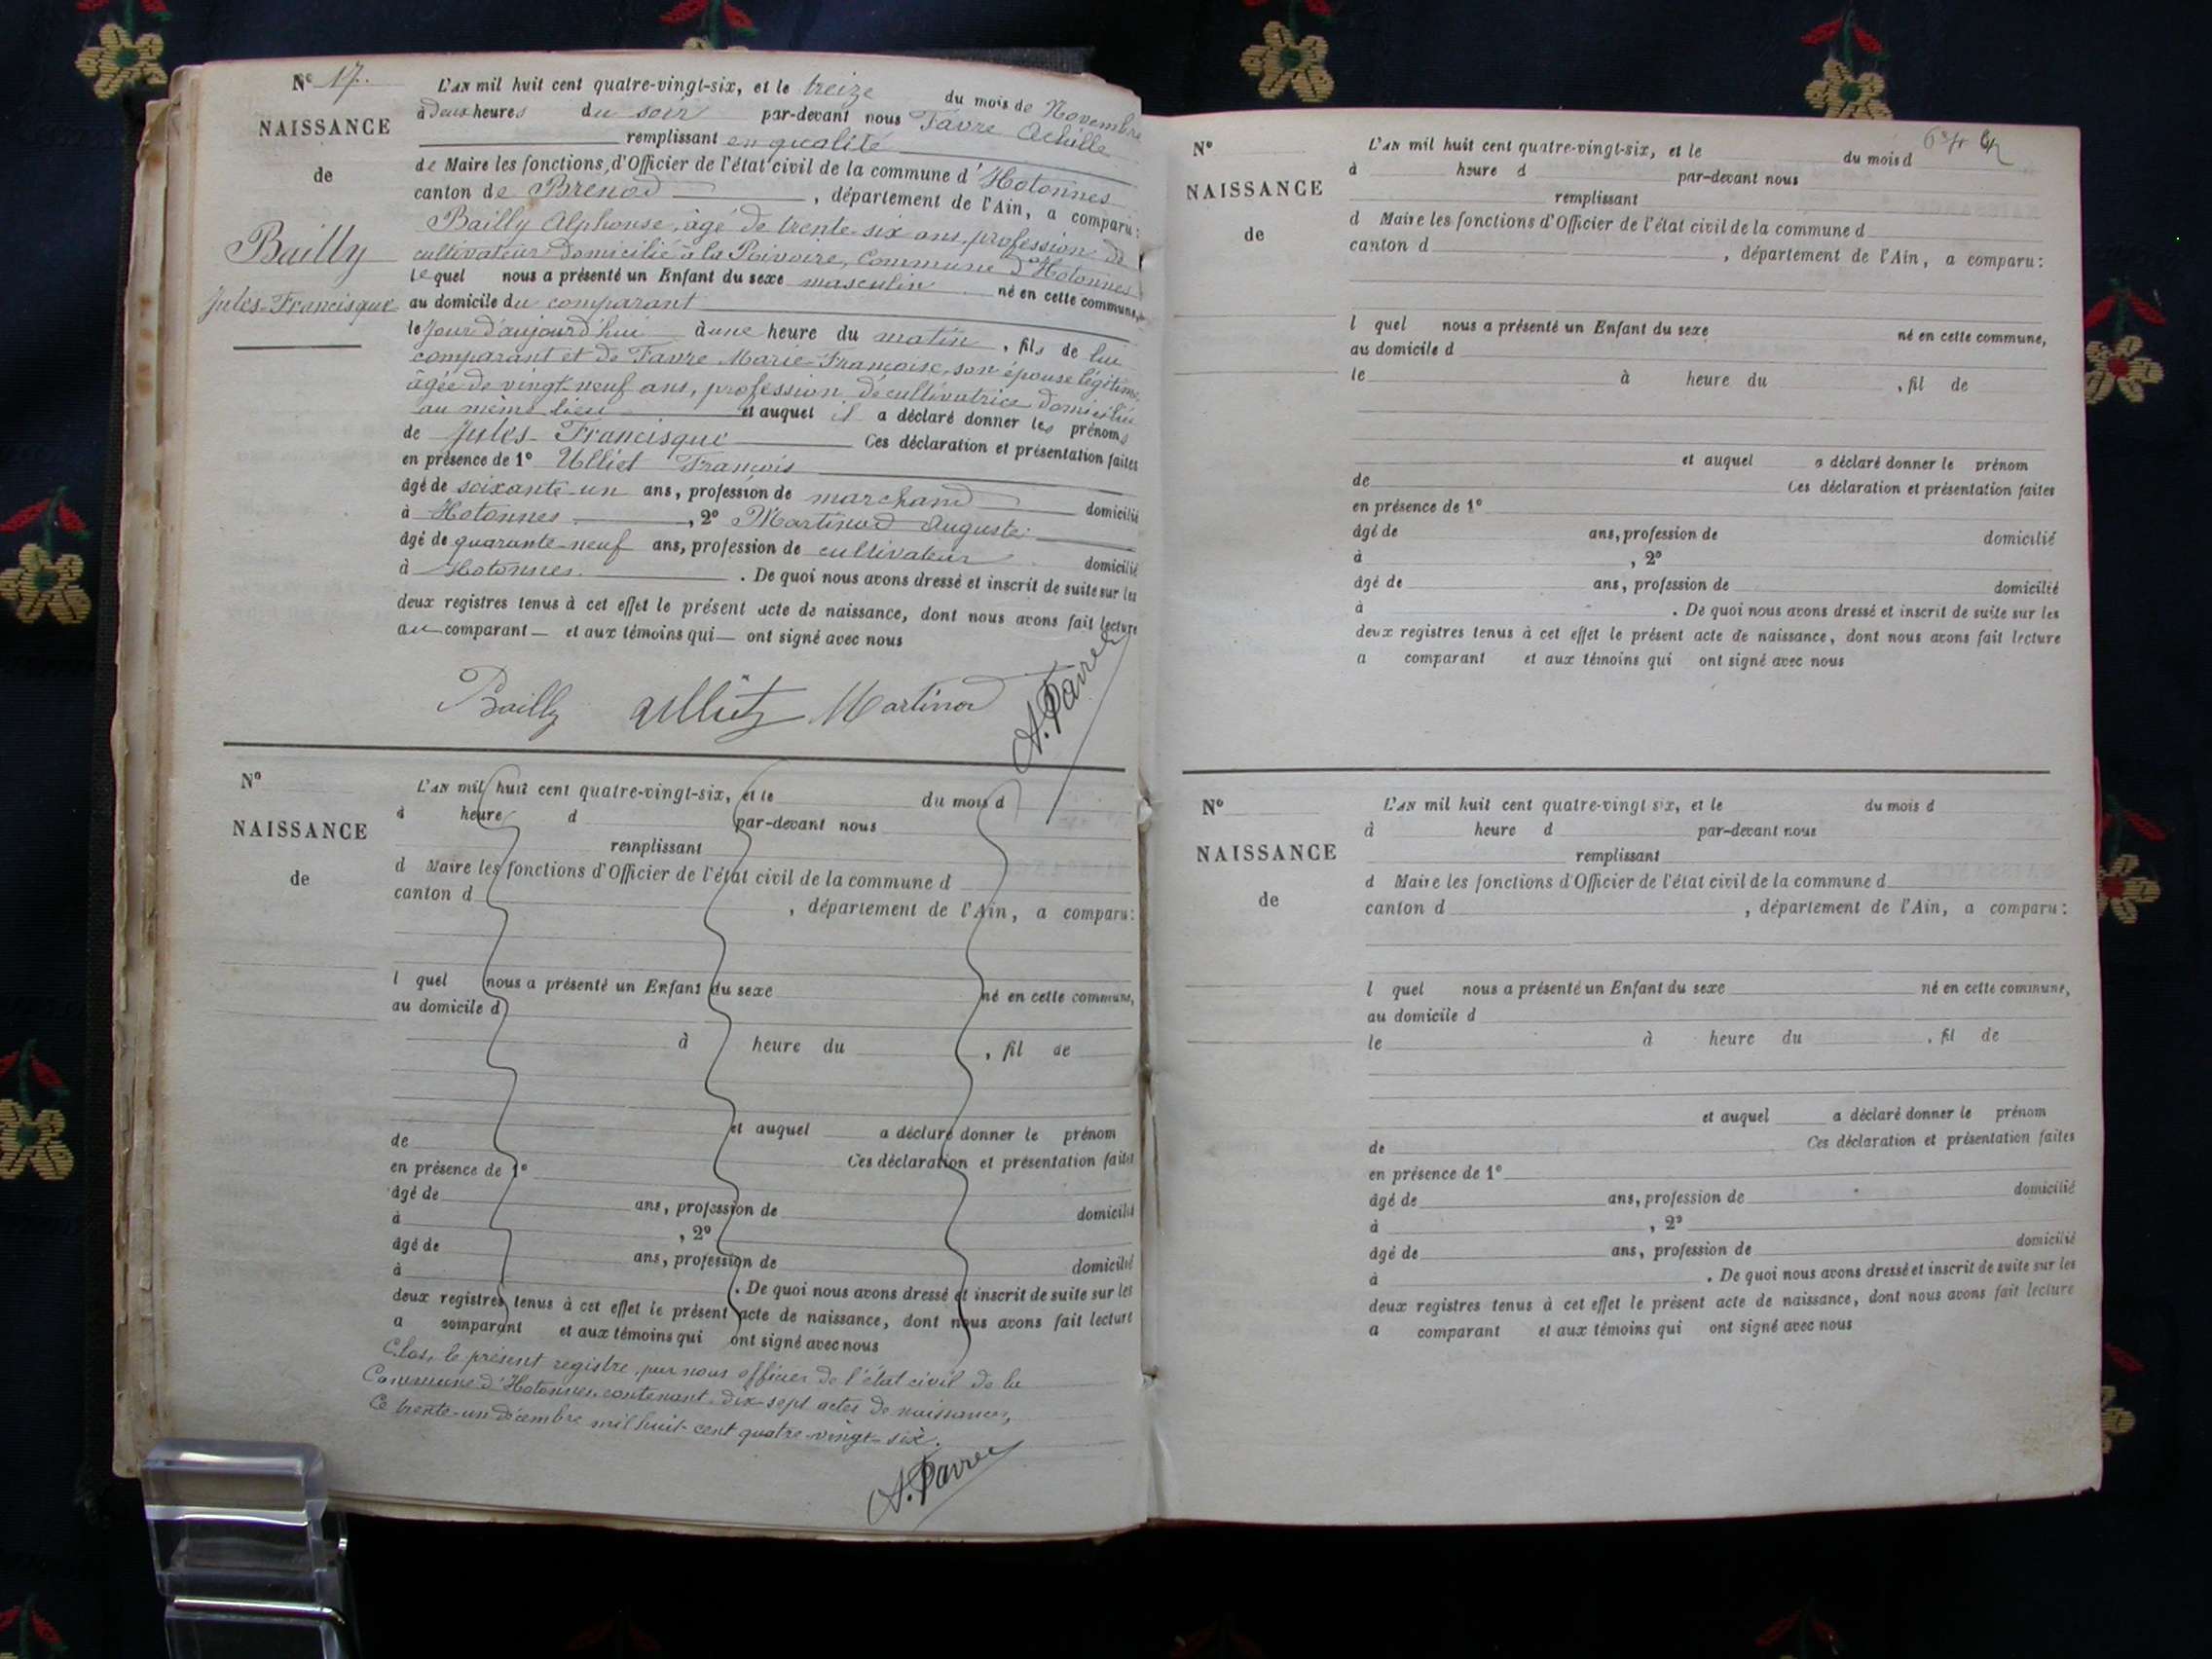 N° 17.
NAISSANCE
de
Bailly
Jules-Francisque
L'AN mil huit cent quatre-vingt-six, et le treize du mois de Novembre
à deux heures du soir par-devant nous Favre Achille
remplissant en qualité
de Maire les fonctions d'Officier de l'état civil de la commune d'Hotonnes
canton de Brenod, département de l'Ain, a comparu:
Bailly Alphonse, âgé de trente-six ans, profession de
cultivateur domicilié à la Poivoire, Commune d'Hotonnes
lequel nous a présenté un Enfant du sexe masculin né en cette commune,
au domicile du comparant
le jour d'aujourd'hui à une heure du matin, fils de lui
comparant et de Favre Marie-Françoise, son épouse légitime,
âgée de vingt-neuf ans, profession de cultivatrice domiciliée
au même lieu et auquel il a déclaré donner les prénoms
de Jules-Francisque Ces déclaration et présentation faites
en présence de 1° Ulliet François
âgé de soixante-un ans, profession de marchand domicilié
à Hotonnes, 2° Martinod Auguste
âgé de quarante-neuf ans, profession de cultivateur domicilié
à Hotonnes. De quoi nous avons dressé et inscrit de suite sur les
deux registres tenus à cet effet le présent acte de naissance, dont nous avons fait lecture
au comparant et aux témoins qui ont signé avec nous
Bailly Ulliet Martinod A. Favre
N°
NAISSANCE
de
L'AN mil huit cent quatre-vingt-six, et le du mois d
à heure d par-devant nous
remplissant
d Maire les fonctions d'Officier de l'état civil de la commune d
canton d , département de l'Ain, a comparu:
l quel nous a présenté un Enfant du sexe né en cette commune,
au domicile d
à heure du , fil de
et auquel a déclaré donner le prénom
de Ces déclaration et présentation faites
en présence de 1°
âgé de ans, profession de domicilié
à , 2°
âgé de ans, profession de domicilié
à . De quoi nous avons dressé et inscrit de suite sur les
deux registres tenus à cet effet le présent acte de naissance, dont nous avons fait lecture
a comparant et aux témoins qui ont signé avec nous
Clos, le présent registre, par nous officier de l'état civil de la
Commune d'Hotonnes, contenant dix-sept actes de naissances,
Ce trente-un décembre mil huit-cent quatre-vingt-six.
A. Favre
N°
NAISSANCE
de
L'AN mil huit cent quatre-vingt-six, et le du mois d
à heure d par-devant nous
remplissant
d Maire les fonctions d'Officier de l'état civil de la commune d
canton d , département de l'Ain, a comparu:
l quel nous a présenté un Enfant du sexe né en cette commune,
au domicile d
le à heure du , fil de
et auquel a déclaré donner le prénom
de Ces déclaration et présentation faites
en présence de 1°
âgé de ans, profession de domicilié
à , 2°
âgé de ans, profession de domicilié
à . De quoi nous avons dressé et inscrit de suite sur les
deux registres tenus à cet effet le présent acte de naissance, dont nous avons fait lecture
a comparant et aux témoins qui ont signé avec nous
N°
NAISSANCE
de
L'AN mil huit cent quatre-vingt six, et le du mois d
à heure d par-devant nous
remplissant
d Maire les fonctions d'Officier de l'état civil de la commune d
canton d , département de l'Ain, a comparu:
l quel nous a présenté un Enfant du sexe né en cette commune,
au domicile d
le à heure du , fil de
et auquel a déclaré donner le prénom
de Ces déclaration et présentation faites
en présence de 1°
âgé de ans, profession de domicilié
à , 2°
âgé de ans, profession de domicilié
à . De quoi nous avons dressé et inscrit de suite sur les
deux registres tenus à cet effet le présent acte de naissance, dont nous avons fait lecture
a comparant et aux témoins qui ont signé avec nous